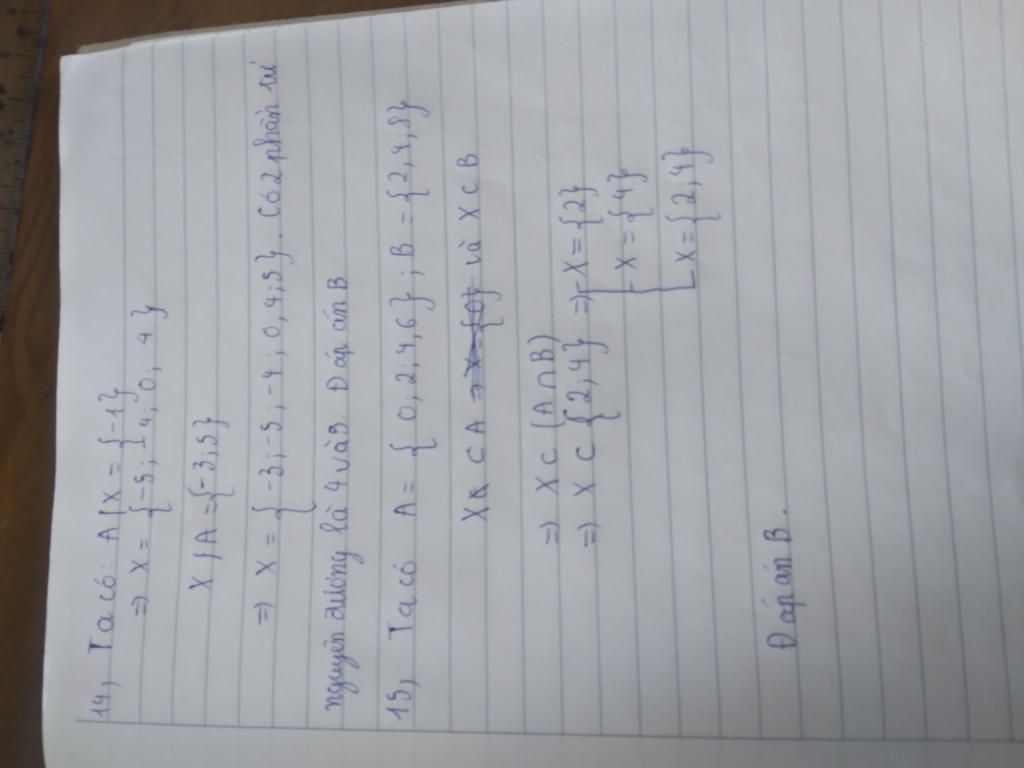 14, Ta có: A \ X = {-1}
=> X = {-5; -4; 0; 4}
X \ A = {-3; 5}
=> X = {-3; -5; -4; 0; 4; 5}. Có 2 phần tử
nguyên dương là 4 và 5. Đáp án B
15, Ta có A = {0; 2; 4; 6}; B = {2; 4; 8}
X ⊂ A => X = {0} và X ⊂ B
=> X ⊂ (A ∩ B)
=> X ⊂ {2; 4} => [ X = {2}
X = {4}
X = {2; 4}
Đáp án B.